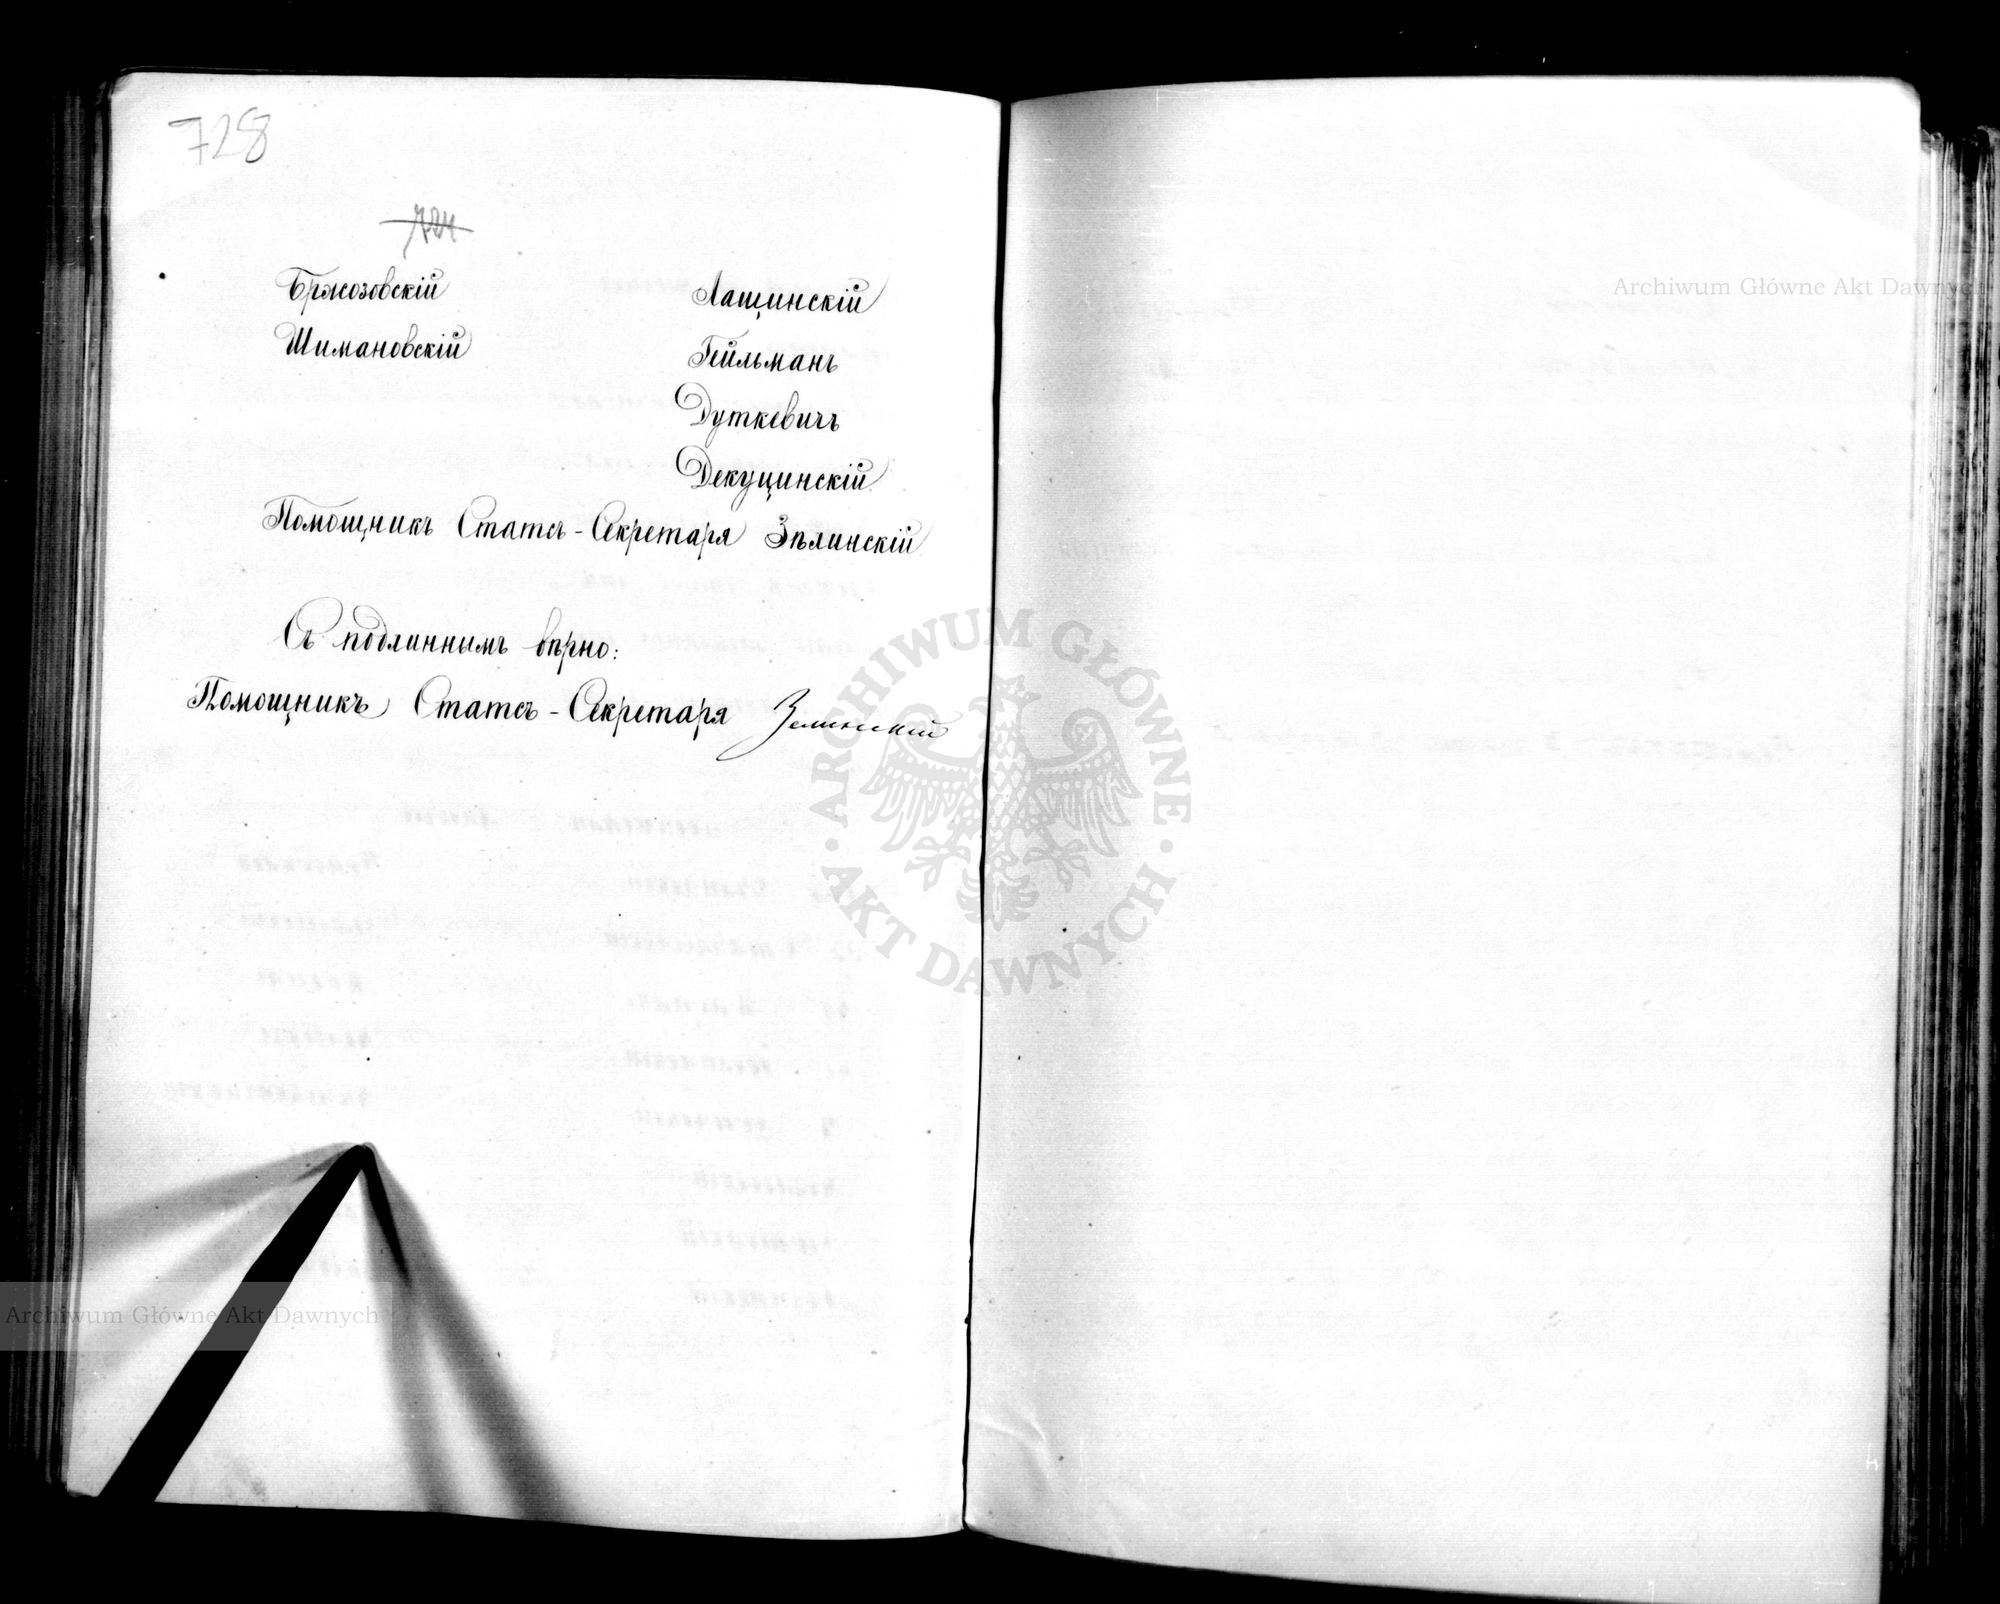 728
724
Бржозовскій Лащинскій
Шимановскій Гейльманъ
Дуткевичъ
Декуцинскій
Помощникъ Статсъ-Секретаря Зѣлинскій
Съ подлиннымъ вѣрно:
Помощникъ Статсъ-Секретаря Зелинскій
Archiwum Główne Akt Dawnych
ARCHIWUM GŁÓWNE AKT DAWNYCH
Archiwum Główne Akt Dawnych